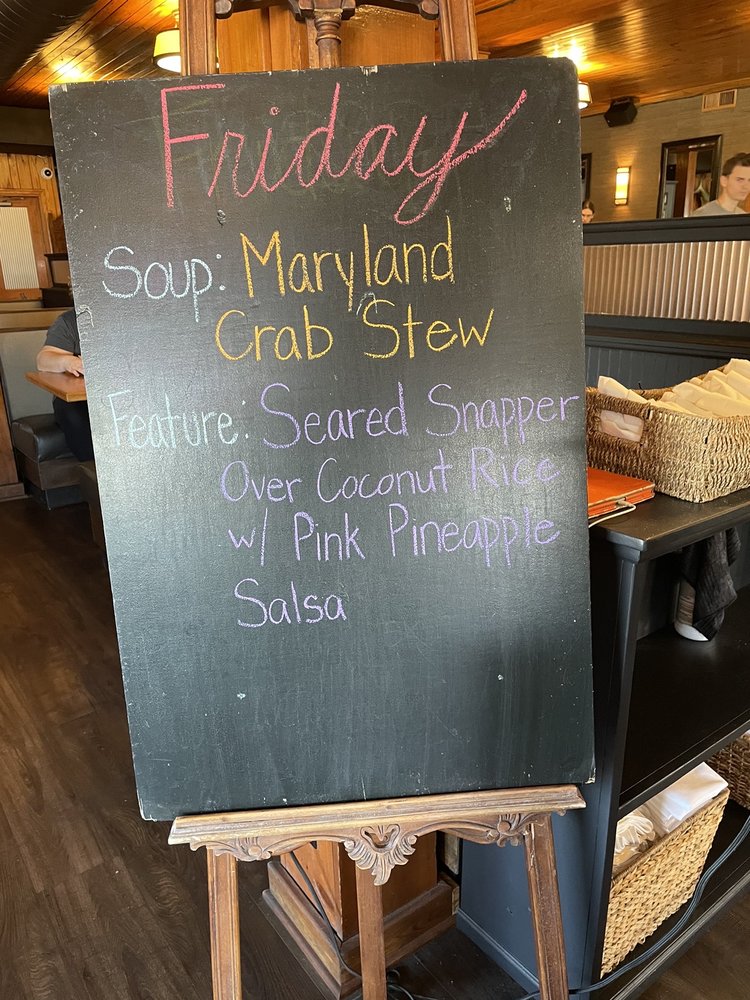 Friday
Soup: Maryland
Crab Stew
Feature: Seared Snapper
Over Coconut Rice
w/ Pink Pineapple
Salsa